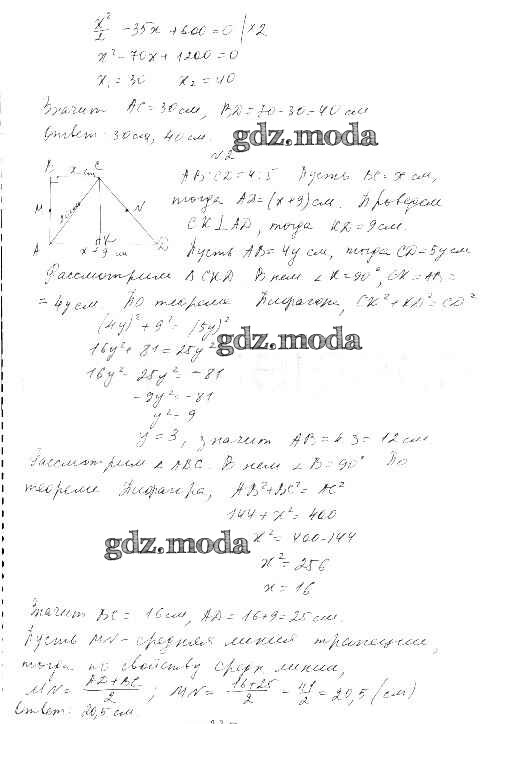 x²/2 - 35x + 600 = 0 | ×2
x² - 70x + 1200 = 0
x₁ = 30 x₂ = 40
Значит AC = 30 см, BD = 70 - 30 = 40 см
Ответ: 30 см, 40 см.
gdz.moda
N2
AB:CD = 4:5 Пусть BC = x см,
тогда AD = (x+9) см. Проведем
CK⊥AD, тогда KD = 9 см.
Пусть AB = 4y см, тогда CD = 5y см
B x см C
M N
A K D
x + 9 см
Рассмотрим Δ CKD В нем ∠K = 90°, CK = AB =
= 4y см По теореме Пифагора, CK² + KD² = CD²
(4y)² + 9² = (5y)²
16y² + 81 = 25y²
gdz.moda
16y² - 25y² = -81
-9y² = -81
y² = 9
y = 3, значит AB = 4·3 = 12 см
Рассмотрим Δ ABC. В нем ∠B = 90° По
теореме Пифагора, AB² + BC² = AC²
144 + x² = 400
gdz.moda
x² = 400 - 144
x² = 256
x = 16
Значит BC = 16 см, AD = 16 + 9 = 25 см.
Пусть MN - средняя линия трапеции,
тогда по свойству средн линии,
MN = AD + BC / 2 ; MN = 16+25 / 2 = 41 / 2 = 20,5 (см)
Ответ: 20,5 см.